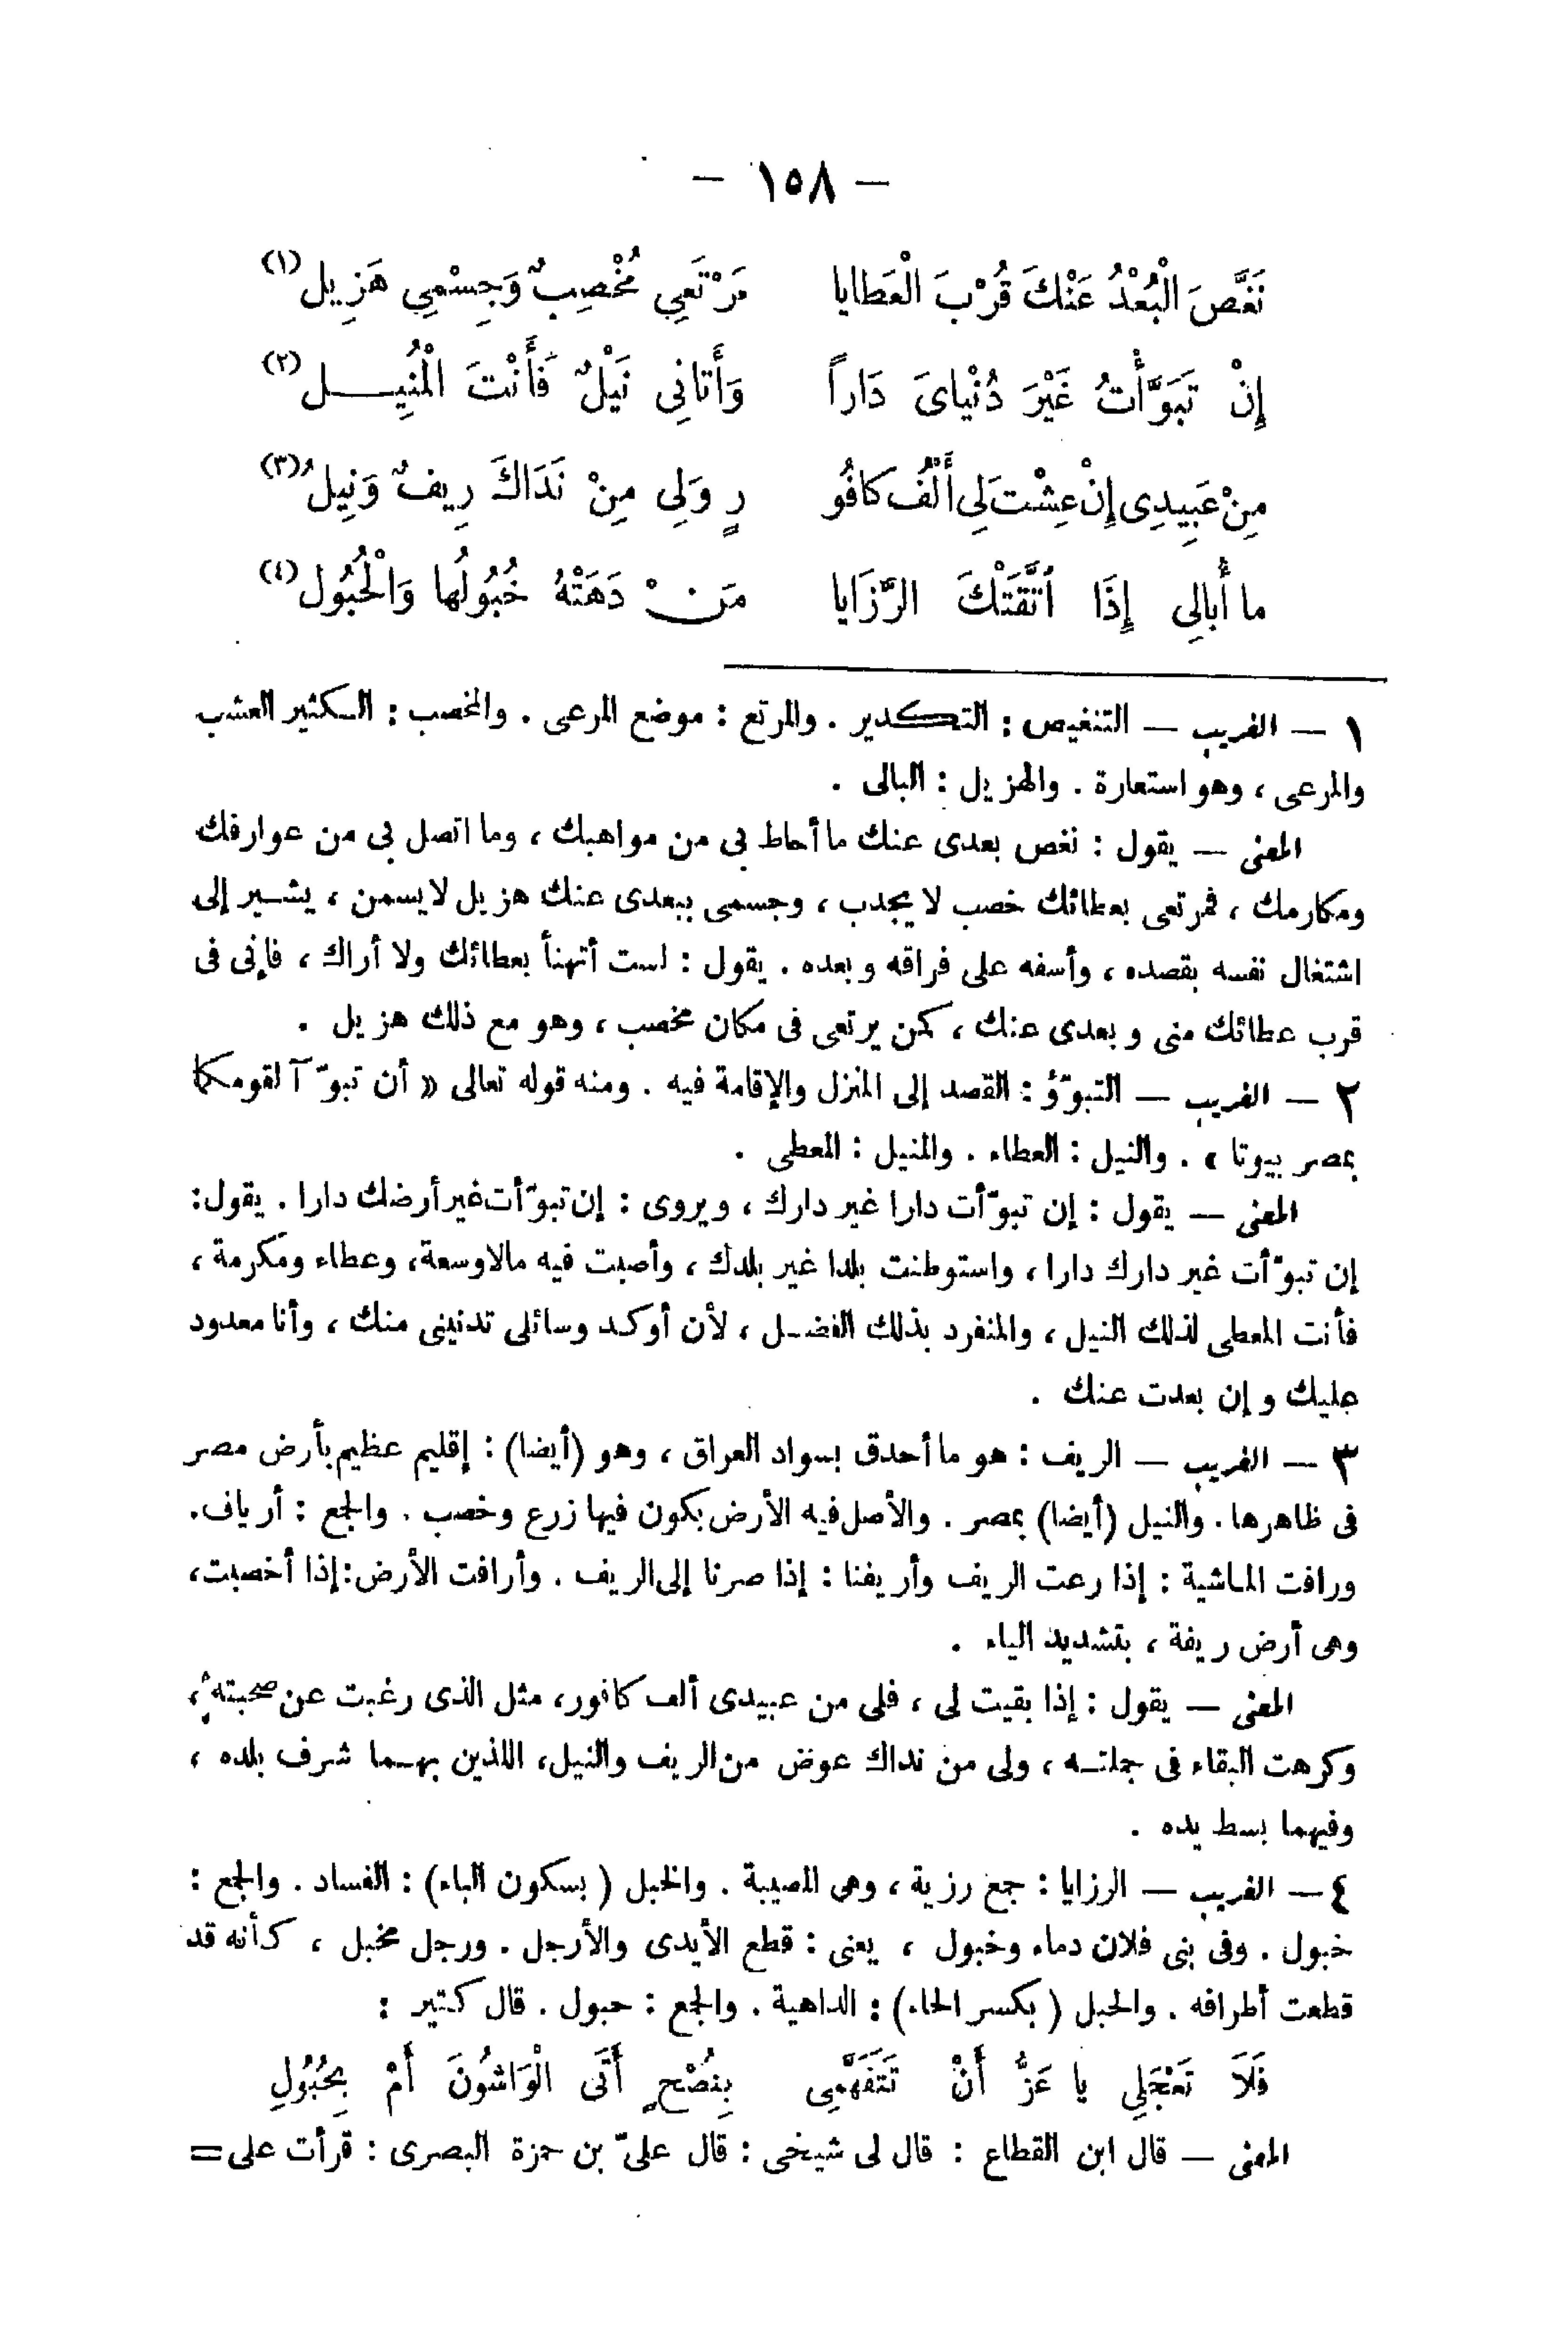 — ١٥٨ —
نَغَّصَ الْبُعْدُ عَنْكَ قُرْبَ الْعَطايا مَرْتَعِي مُخْصِبٌ وَجِسْمِي هَزِيل (١)
إِنْ تَبَوَّأْتُ غَيْرَ دُنْيَاىَ دَاراً وَأَتانِي نَيْلٌ فَأَنْتَ الْمُنِيل (٢)
مِنْ عَبِيدِى إِنْ عِشْتَ لِى أَلْفُ كافُو رٍ وَلِي مِنْ نَدَاكَ رِيفٌ وَنِيلُ (٣)
ما أُبالِى إِذَا اُتَّقَتْكَ الرَّزَايا مَنْ دَهَتْهُ خُبُولُها وَالْخُبُول (٤)
١ — الغريب — التنغيص : التكدير . والمرتع : موضع المرعى . والمخصب : الكثير العشب
والمرعى ، وهو استعارة . والهزيل : البالى .
المعنى — يقول : نغص بعدى عنك ما أحاط بى من مواهبك ، وما اتصل بى من عوارفك
ومكارمك ، فمرتعى بعطائك خصب لا يجدب ، وجسمى ببعدى عنك هزيل لا يسمن ، يشير إلى
اشتغال نفسه بقصده ، وأسفه على فراقه وبعده . يقول : لست أتهنأ بعطائك ولا أراك ، فإنى فى
قرب عطائك منى وبعدى عنك ، كمن يرتعى فى مكان مخصب ، وهو مع ذلك هزيل .
٢ — الغريب — التبوّؤ : القصد إلى المنزل والإقامة فيه . ومنه قوله تعالى « أن تبوّآ لقومكما
بمصر بيوتا » . والنيل : العطاء . والمنيل : المعطى .
المعنى — يقول : إن تبوّأت دارا غير دارك ، ويروى : إن تبوّأت غير أرضك دارا . يقول :
إن تبوّأت غير دارك دارا ، واستوطنت بلدا غير بلدك ، وأصبت فيه مالا وسعة ، وعطاء ومكرمة ،
فأنت المعطى لذلك النيل ، والمنفرد بذلك الفضل ، لأن أوكد وسائلى تدنينى منك ، وأنا معدود
عليك وإن بعدت عنك .
٣ — الغريب — الريف : هو ما أحدق بسواد العراق ، وهو (أيضا) : إقليم عظيم بأرض مصر
فى ظاهرها . والنيل (أيضا) بمصر . والأصل فيه الأرض يكون فيها زرع وخصب . والجمع : أرياف .
ورافت الماشية : إذا رعت الريف وأريفنا : إذا صرنا إلى الريف . وأرافت الأرض : إذا أخصبت ،
وهى أرض ريفة ، بتشديد الياء .
المعنى — يقول : إذا بقيت لى ، فلى من عبيدى ألف كافور ، مثل الذى رغبت عن صحبته ،
وكرهت البقاء فى جملته ، ولى من نداك عوض من الريف والنيل ، اللذين بهما شرف بلده ،
وفيهما بسط يده .
٤ — الغريب — الرزايا : جمع رزية ، وهى المصيبة . والخبل ( بسكون الباء) : الفساد . والجمع :
خبول . وفى بنى فلان دماء وخبول ، يعنى : قطع الأيدى والأرجل . ورجل مخبل ، كأنه قد
قطعت أطرافه . والحبل ( بكسر الحاء) : الداهية . والجمع : حبول . قال كثير :
فَلاَ تَعْجَلِي يا عَزُّ أَنْ تَتَفَهَّمِى بِنُصْحٍ أَتَى الْوَاشُونَ أَمْ بِحُبُولِ
المعنى — قال ابن القطاع : قال لى شيخى : قال علىّ بن حمزة البصرى : قرأت على =